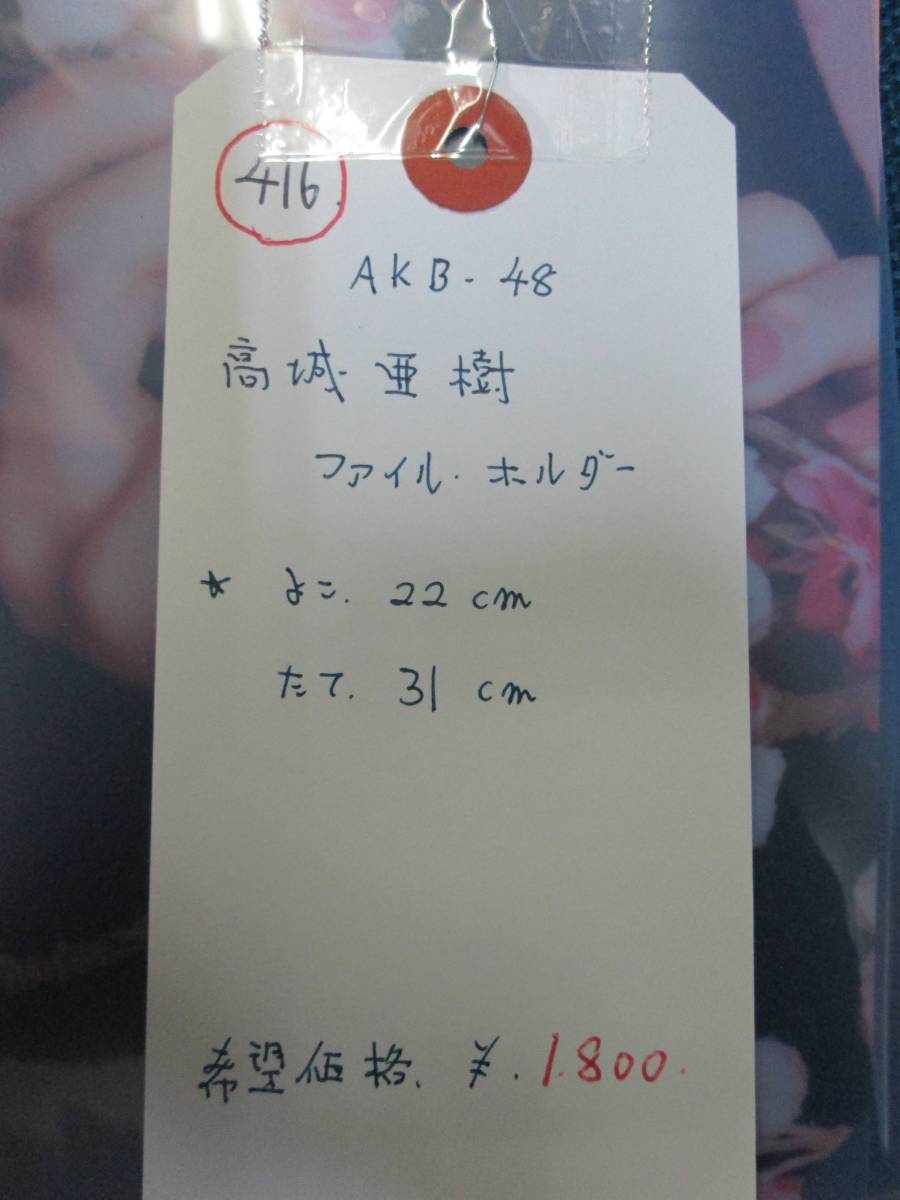 416
AKB-48
高城亜樹
ファイル・ホルダー
★ よこ. 22 cm
たて. 31 cm
希望価格. ¥. 1.800.